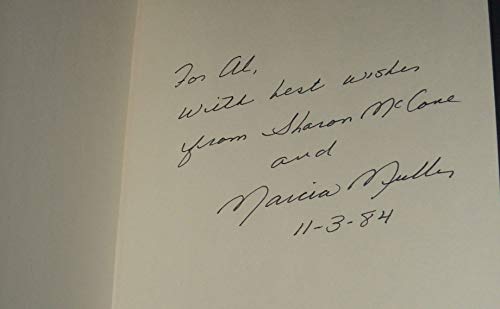 For Al,
with best wishes
from Sharon McCone
and
Marcia Muller
11-3-84